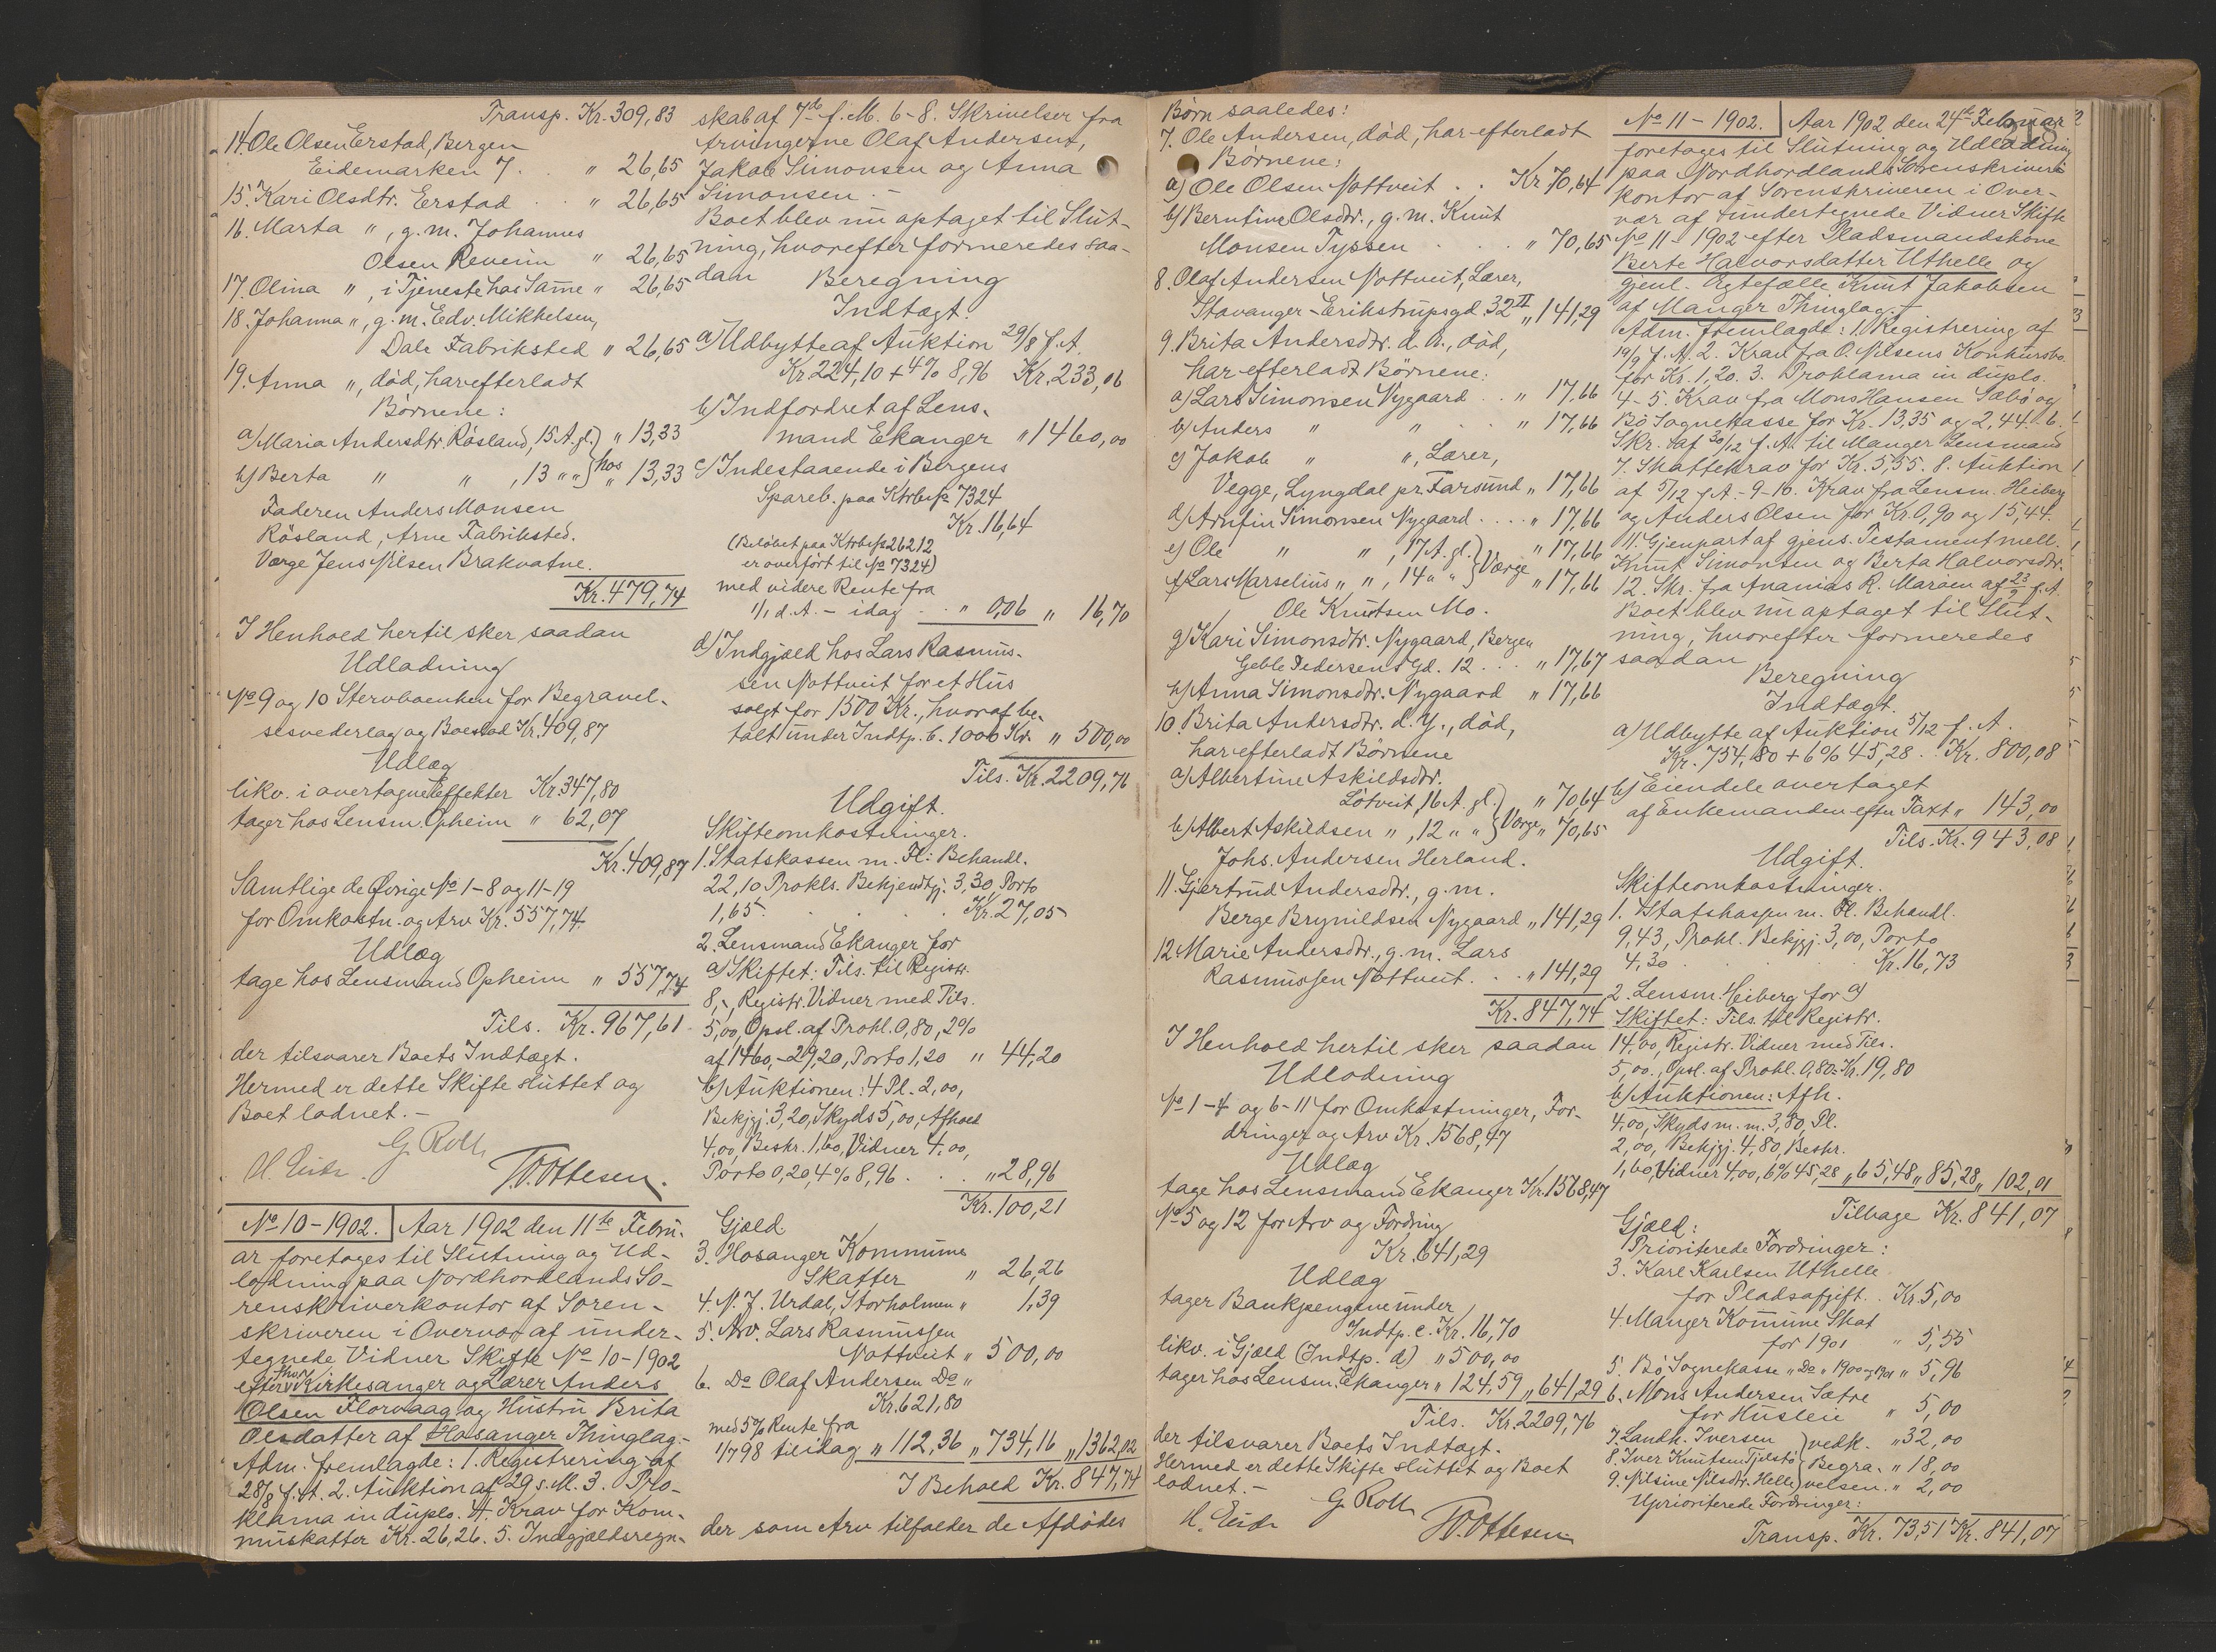 Transp. Kr. 309,83
14. Ole Olsen Erstad, Bergen
Eidemarken 7. " 26,65
15. Kari Olsdtr. Erstad . . " 26,65
16. Marta ", g. m. Johannes
Olsen Reverin " 26,65
17. Olina ", i Tjeneste hos Samme " 26,65
18. Johanna ", g. m. Edv. Mikkelsen,
Dale Fabriksted " 26,65
19. Anna ", död, har efterladt
Börnene:
a) Maria Andersdtr. Rösland, 15 A. gl. } " 13,33
b) Berta " " , 13 " " } hos " 13,33
Faderen Anders Monsen
Rösland, Arne Fabriksted.
Værge Jens Nilsen Brakvatne.
Kr. 479,74
I Henhold hertil sker saadan
Udlodning
No 9 og 10 Stervboenken for Begravel-
sesvederlag og Boeslod Kr. 409,87
Udlæg
likv. i overtagne Effekter Kr. 347,80
tager hos Lensm. Opheim " 62,07
Kr. 409,87
Samtlige de Övrige No 1-8 og 11-19
for Omkostn. og Arv Kr. 557,74.
Udlæg
tage hos Lensmand Opheim " 557,74
Tils. Kr. 967,61
der tilsvarer Boets Indtægt.
Hermed er dette Skifte sluttet og
Boet lodnet. -
G. Roll
T.V. Ottesen.
No 10 - 1902. Aar 1902 den 11te Febru-
ar foretoges til Slutning og Ud-
lodning paa Nordhordlands So-
renskriverkontor af Soren-
skriveren i Overvær af under-
tegnede Vidner Skifte No 10-1902
efter Kirkesanger og Lærer Anders
Olsen Florvaag og Hustru Brita
Olsdatter af Hosanger Thinglag. -
Adm. fremlagde: 1. Registrering af
28/8 f. A. 2. Auktion af 29 s. M. 3. Pro-
klama in duplo. 4. Krav for Kom-
muskatter Kr. 26,26. 5. Indgjældsregn-
skab af 7de f. M. 6-8. Skrivelser fra
Arvingerne Olaf Andersen,
Jakob Simonsen og Anna
Simonsen -
Boet blev nu optaget til Slut-
ning, hvorefter formeredes saa-
dan Beregning
Indtægt.
a) Udbytte af Auktion 29/8 f. A.
Kr. 224,10 + 4% 8,96 Kr. 233,06
b) Indfordret af Lens-
mand Ekanger " 1460,00
c) Indestaaende i Bergens
Spareb. paa Ktrbefs 7324
Kr. 16,64
(Belöbet paa Ktrbefs 26212
er overfört til No 7324)
med videre Rente fra
1/1 d. A. - idag . . " 0,06 " 16,70
d) Indgjæld hos Lars Rasmus-
sen Nottveit for et Hus
solgt for 1500 Kr., hvoraf be-
talt under Indtp. b. 1000 Kr. " 500,00
Tils. Kr. 2209,76
Udgift.
Skifteomkostninger.
1. Statskassen m. Fl: Behandl.
22,10 Prokls. Bekjendtgj. 3,30, Porto
1,65. . . . . Kr. 27,05
2. Lensmand Ekanger for
a) Skiftet: Tils. til Registr.
8,-, Registr. Vidner med Tils.
5,00, Opsl. af Prokl. 0,80, 2%
af 1460,- 29,20, Porto 1,20 " 44,20
b) Auktionen: 4 Pl. 2,00,
Bekjgj. 3,20, Skyds 5,00, Afhold
4,00, Beskr. 1,60, Vidner 4,00,
Porto 0,20, 4% 8,96 . . . " 28,96
Kr. 100,21
Gjæld.
3. Hosanger Kommune
Skatter " 26,26
4. N. J. Urdal, Storholmen " 1,39
5. Arv. Lars Rasmussen
Nottveit " 500,00
6. Do Olaf Andersen Do "
Kr. 621,80
med 5% Rente fra
1/7 98 til idag " 112,36 " 734,16 " 1362,02
I Behold Kr. 847,74
der som Arv tilfalder de Afdödes
Börn saaledes:
7. Ole Andersen, död, har efterladt
Börnene:
a) Ole Olsen Nottveit . . Kr. 70,64
b) Berntine Olsdtr., g. m. Knut
Monsen Tyssen . . . " 70,65
8. Olaf Andersen Nottveit, Lærer,
Stavanger - Erikstrupsgd. 32 II " 141,29
9. Brita Andersdtr. d. Æ., död,
har efterladt Börnene:
a) Lars Simonsen Nygaard . . " 17,66
b) Anders " " . " 17,66
c) Jakob " ", Lærer,
Vegge, Lyngdal pr. Farsund " 17,66
d) Arnfin Simonsen Nygaard . . . " 17,66
e) Ole " " , 17 A. gl. } " 17,66
f) Lars Marselius " ", 14 " " } Værge " 17,66
Ole Knutsen Mo.
g) Kari Simonsdtr. Nygaard, Bergen
Geble Pedersens Gd. 12 . . . " 17,67
h) Anna Simonsdtr. Nygaard " 17,66
10. Brita Andersdtr. d. Y., död,
har efterladt Börnene
a) Albertine Askildsdtr.
Lötveit, 16 A. gl. } " 70,64
b) Albert Askildsen ", 12 " " } Værge " 70,65
Johs. Andersen Herland.
11. Gjertrud Andersdtr., g. m.
Berge Brynildsen Nygaard " 141,29
12. Marie Andersdtr., g. m. Lars
Rasmussen Nottveit. . . " 141,29
Kr. 847,74
I Henhold hertil sker saadan
Udlodning
No 1-4 og 6-11 for Omkostninger, For-
dringer og Arv Kr. 1568,47
Udlæg
tage hos Lensmand Ekanger Kr. 1568,47
No 5 og 12 for Arv og Fordring
Kr. 641,29
Udlæg
tager Bankpengene under
Indtp. c. Kr. 16,70
likv. i Gjæld (Indtp. d) " 500,00
tager hos Lensm. Ekanger " 124,59 " 641,29
Tils. Kr. 2209,76
der tilsvarer Boets Indtægt.
Hermed er dette Skifte sluttet og Boet
lodnet. -
G. Roll
T.V. Ottesen
No 11 - 1902. Aar 1902 den 24de Februar
foretoges til Slutning og Udlodning
paa Nordhordlands Sorenskriver
kontor af Sorenskriveren i Over-
vær af undertegnede Vidner Skifte
No 11 - 1902 efter Pladsmandskone
Berte Halvorsdatter Uthelle og
gjenl. Ægtefælle Knut Jakobsen
af Manger Thinglag. -
Adm. fremlagde: 1. Registrering af
19/9 f. A. 2. Krav fra O. Nilsens Konkursbo.
for Kr. 1,20. 3. Proklama in duplo.
4-5. Krav fra Mons Hansen Sæbö og
Bö Sognekasse for Kr. 13,35 og 2,44. 6.
Skr. af 30/12 f. A. til Manger Lensmand
7. Skattekrav for Kr. 5,55. 8. Auktion
af 5/12 f. A. - 9-10. Krav fra Lensm. Heiberg
og Anders Olsen for Kr. 0,90 og 15,44.
11. Gjenpart af gjens. Testament mell.
Knut Simonsen og Berta Halvorsdtr.
12. Skr. fra Ananias R. Maröen af 23/9 f. A.
Boet blev nu optaget til Slut-
ning, hvorefter formeredes
saadan
Beregning
Indtægt.
a) Udbytte af Auktion 5/12 f. A.
Kr. 754,80 + 6% 45,28 . . Kr. 800,08
b) Eiendele overtaget
af Enkemanden efter Taxt " 143,00
Tils. Kr. 943,08
Udgift.
Skifteomkostninger.
1. Statskassen m. Fl. Behandl.
9,43, Prokl. Bekjgj. 3,00, Porto
4,30 . . . Kr. 16,73
2. Lensm. Heiberg for a)
Skiftet: Tils. til Registr.
14,00, Registr. Vidner med Tils.
5,00., Opsl. af Prokl. 0,80 = Kr. 19,80
b) Auktionen: Afh.
4,00, Skyds m. m. 3,80, Pl.
2,00, Bekjgj. 4,80, Beskr.
1,60, Vidner 4,00, 6% 45,28 " 65,48 " 85,28 " 102,01
Tilbage Kr. 841,07
Gjæld:
Prioriterede Fordringer:
3. Karl Karlsen Uthelle
for Pladsafgift. . Kr. 5,00
4. Manger Komune Skat
for 1901 " 5,55
5. Bö Sognekasse " Do " 1900 og 1901 " 5,96
6. Mons Andersen Sætre
for Husleie " 5,00
7. Landh. Iversen } vedk. " 32,00
8. Iver Knutsen Tjelstö } Begra- " 18,00
9. Nilsine Nilsdtr. Helle } velsen. " 2,00
Uprioriterede Fordringer:
Transp. Kr. 73,51 Kr. 841,07